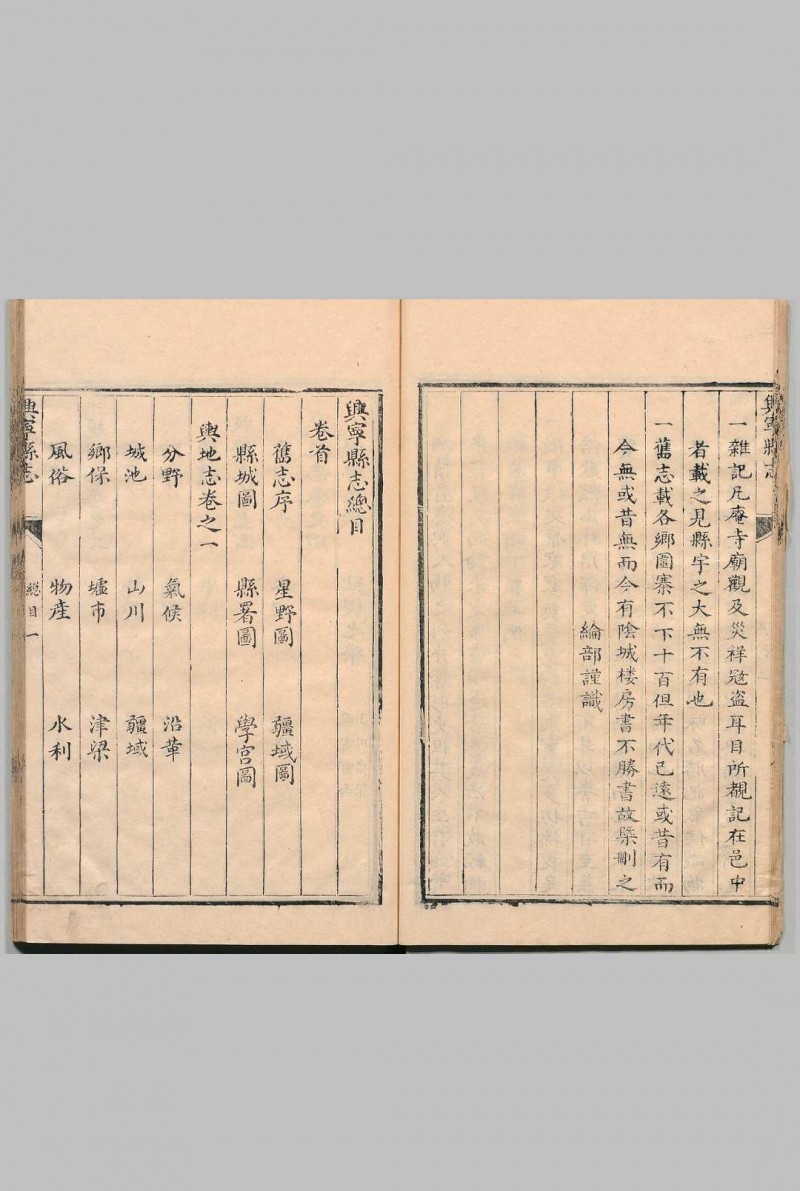 興寧縣志
一雜記凡庵寺廟觀及災祥寇盜耳目所覩記在邑中
者載之見縣宇之大無不有也
一舊志載各鄉圍寨不下十百但年代已遠或昔有而
今無或昔無而今有陰城楼房書不勝書故槩刪之
綸部謹識
興寧縣志總目
卷首
舊志序 星野圖 疆域圖
縣城圖 縣署圖 學宮圖
輿地志卷之一
分野 氣候 沿革
城池 山川 疆域
鄉保 墟市 津梁
風俗 物產 水利
興寧縣志 總目 一